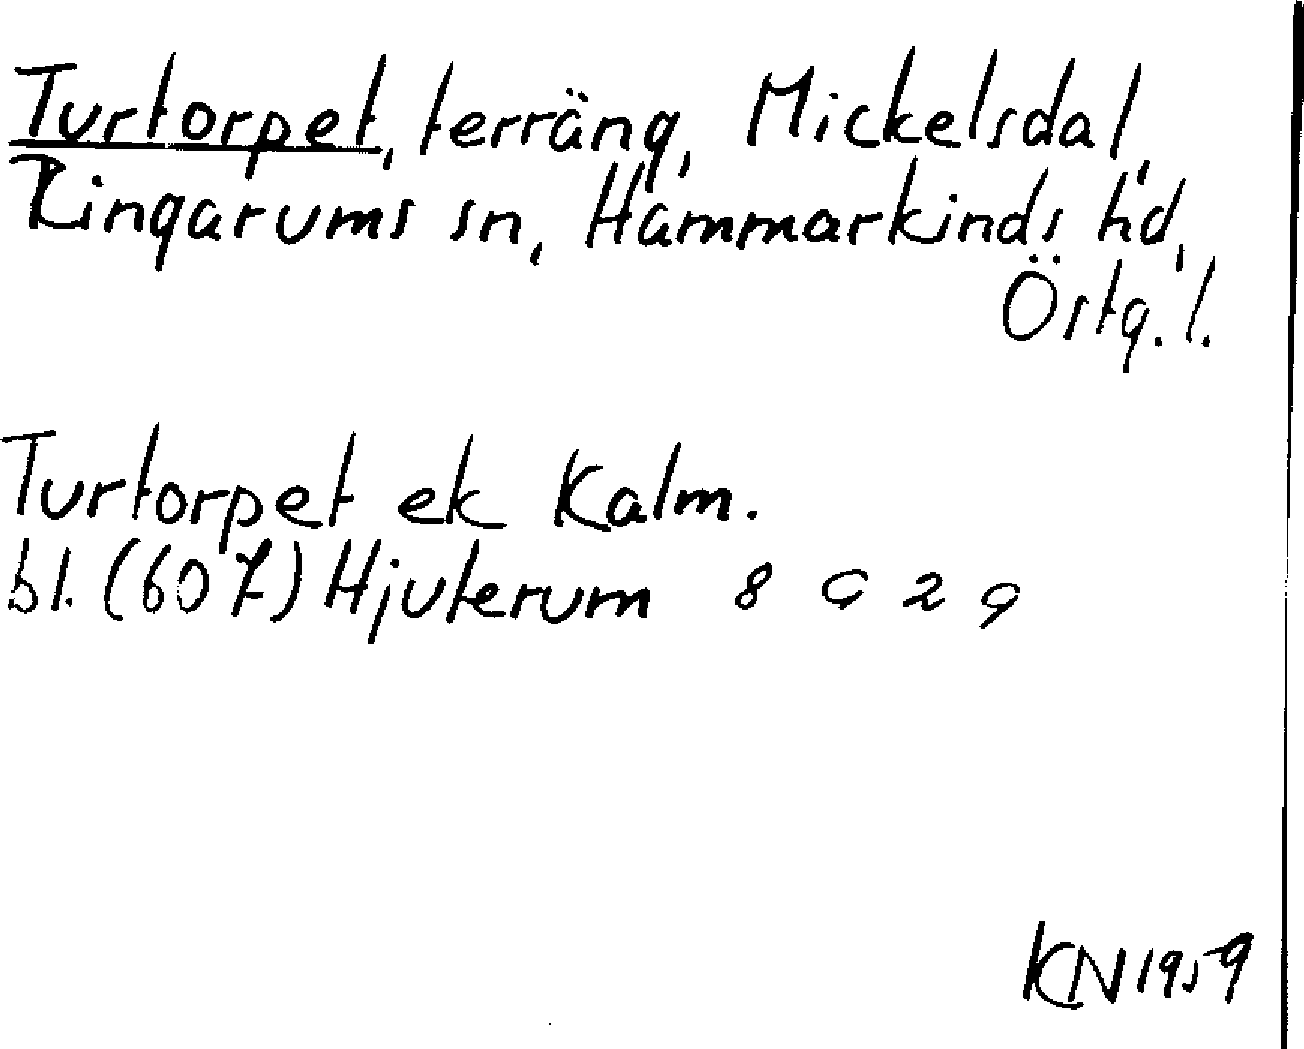 Turtorpet, terräng, Mickelsdal,
Ringarums sn, Hammarkinds hd,
Östg. l.
Turtorpet ek Kalm.
bl. (607) Hjuterum 8 G 2 g
KN 1959